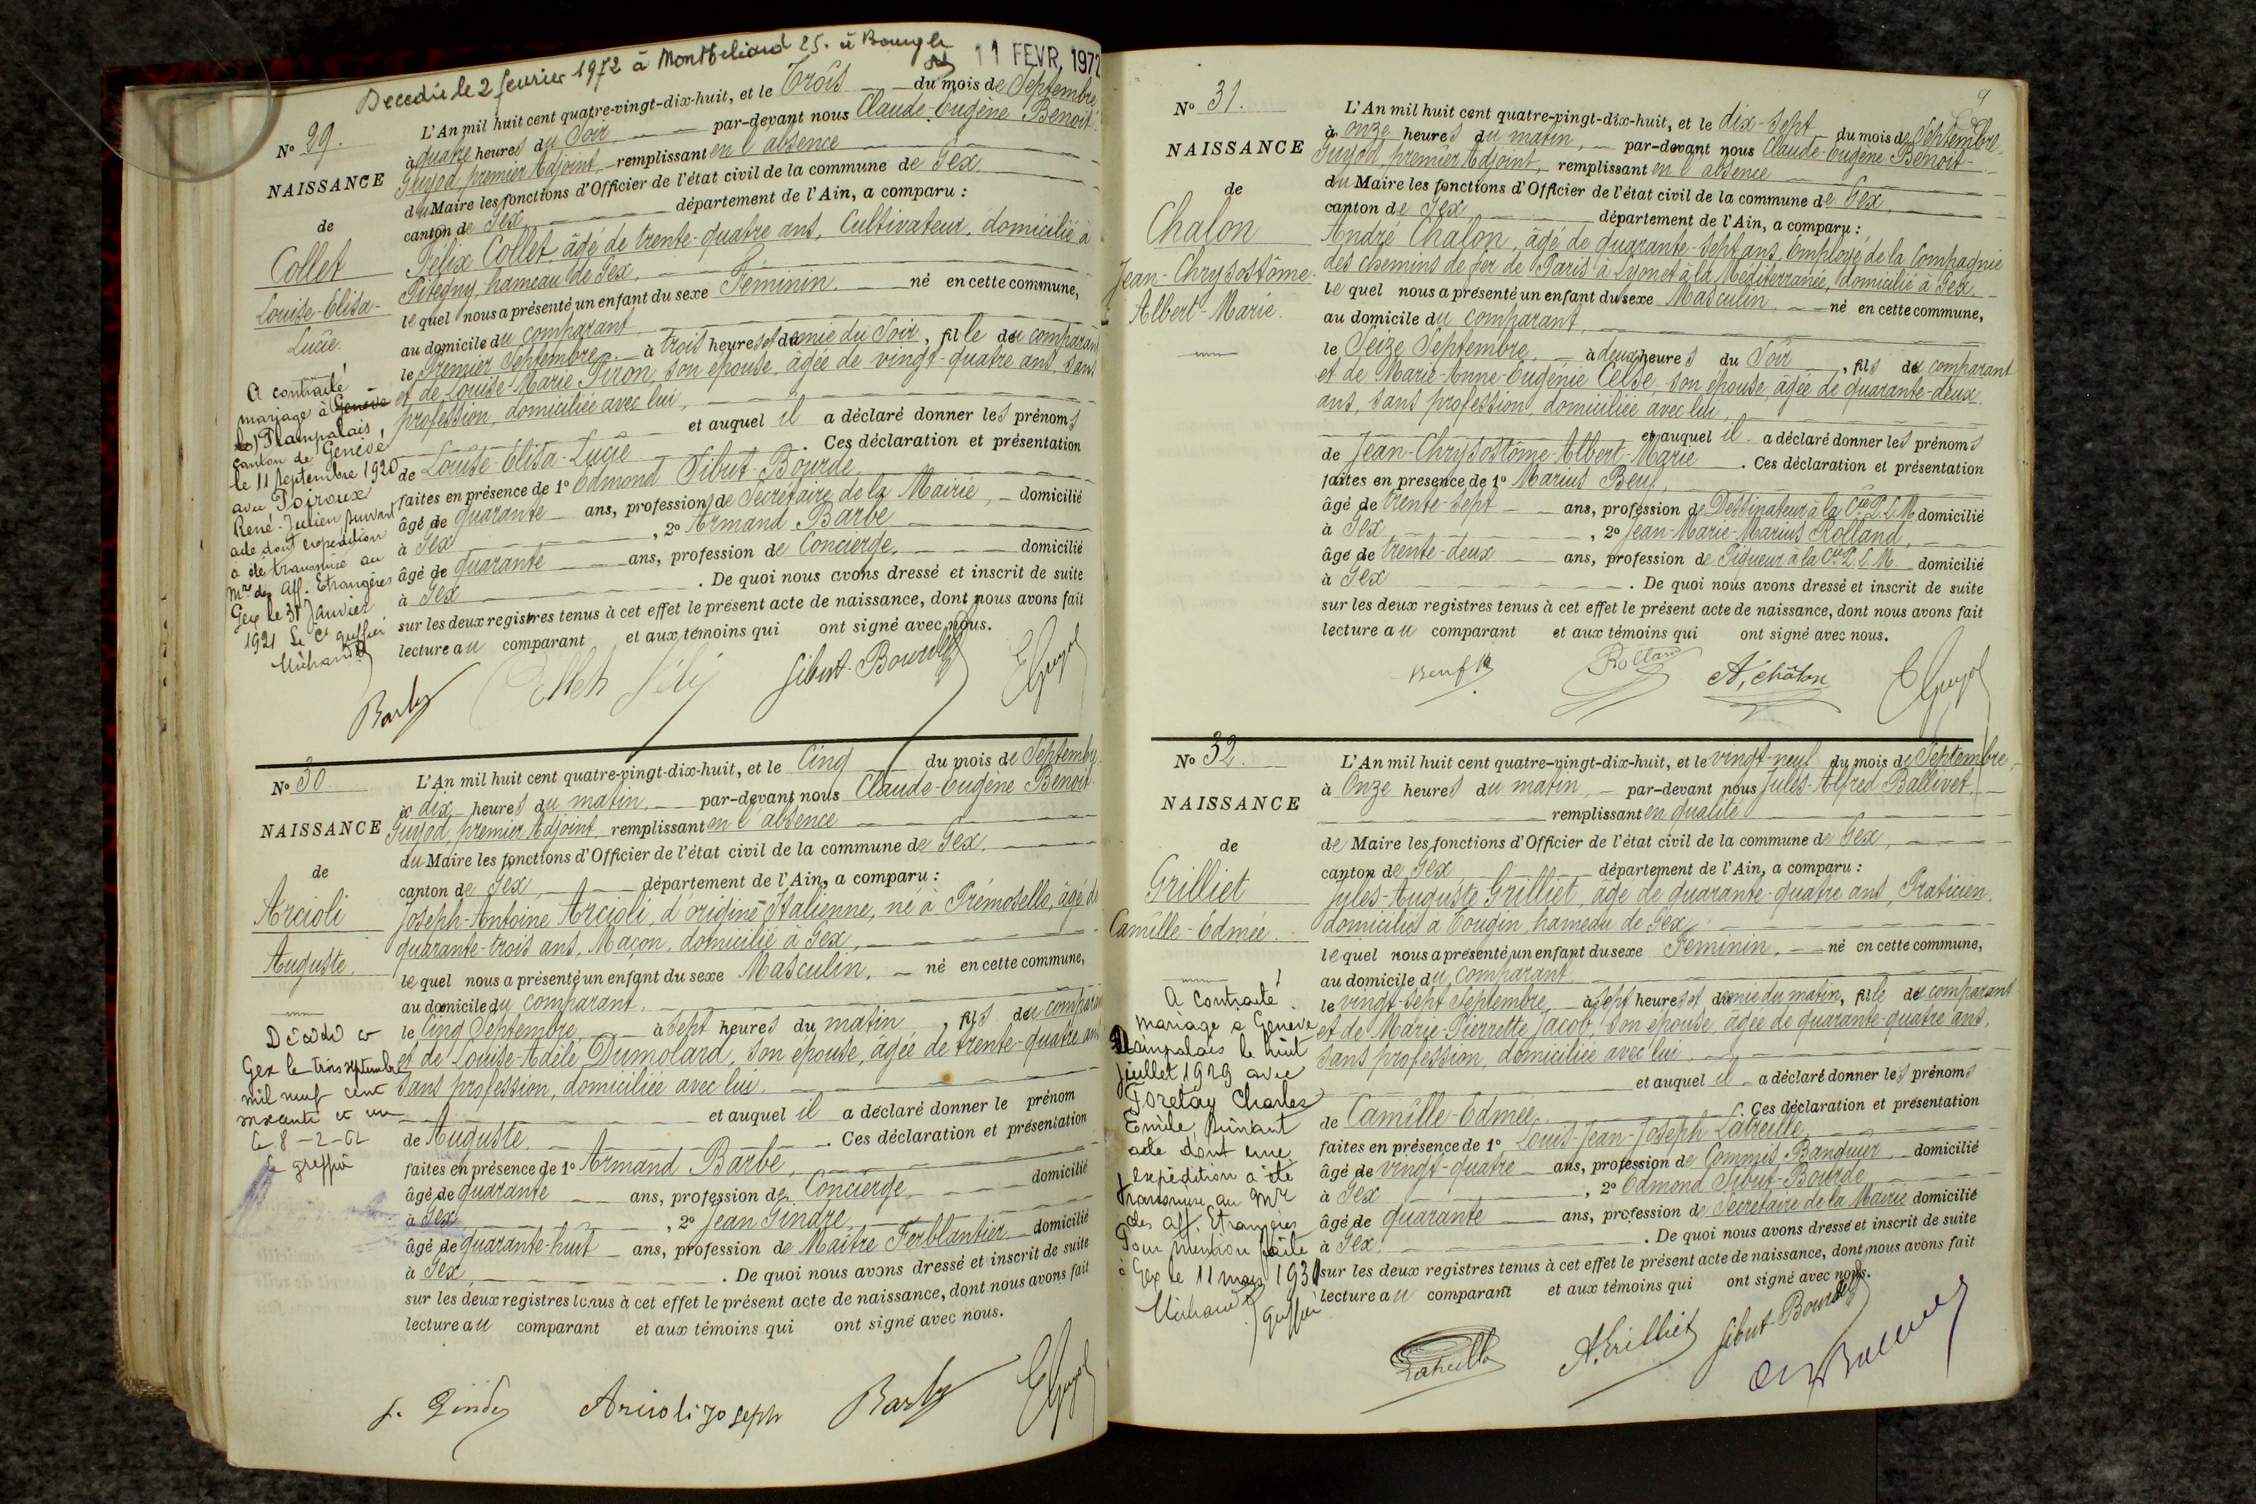 Decedée le 2 fevrier 1972 à Montbéliard 25. à Bourg le
11 FEVR. 1972
N° 29.
NAISSANCE
de
Collet
Louise-Elisa-
Lucie.
L'An mil huit cent quatre-vingt-dix-huit, et le Trois du mois de Septembre,
à quatre heures du Soir par-devant nous Claude-Eugène Benoit
Guyod, premier Adjoint remplissant en l'absence
du Maire les fonctions d'Officier de l'état civil de la commune de Gex,
canton de Gex département de l'Ain, a comparu :
Félix Collet âgé de trente-quatre ans, Cultivateur, domicilié à
Pitegny, hameau de Gex,
lequel nous a présenté un enfant du sexe Féminin né en cette commune,
au domicile du comparant
le Premier Septembre à trois heures et demie du Soir, fille du comparant
et de Louise-Marie Piron, son épouse, âgée de vingt-quatre ans, sans
profession, domiciliée avec lui,
et auquel il a déclaré donner les prénoms
de Louise-Elisa-Lucie. Ces déclaration et présentation
faites en présence de 1° Edmond Sibut-Bourde,
âgé de quarante ans, profession de Secrétaire de la Mairie, domicilié
à Gex, 2° Armand Barbe
âgé de quarante ans, profession de Concierge, domicilié
à Gex. De quoi nous avons dressé et inscrit de suite
sur les deux registres tenus à cet effet le présent acte de naissance, dont nous avons fait
lecture au comparant et aux témoins qui ont signé avec nous.
A contracté
mariage à Genève
Plainpalais,
canton de Genève
le 11 septembre 1920
avec Poiroux
René-Julien suivant
acte dont expédition
a été transmise au
Mre des Aff. Etrangères
Gex le 31 Janvier
1921 Le Cs greffier
Michaud
Barbe
Collet Félix
Sibut-Bourde
E Guyod
N° 30
NAISSANCE
de
Arcioli
Auguste.
L'An mil huit cent quatre-vingt-dix-huit, et le Cinq du mois de Septembre
à dix heures du matin, par-devant nous Claude-Eugène Benoit
Guyod, premier Adjoint remplissant en l'absence
du Maire les fonctions d'Officier de l'état civil de la commune de Gex,
canton de Gex, département de l'Ain, a comparu :
Joseph-Antoine Arcioli, d'origine Italienne, né à Prémosello, âgé de
quarante-trois ans, Maçon, domicilié à Gex,
lequel nous a présenté un enfant du sexe Masculin, né en cette commune,
au domicile du comparant,
le Cinq Septembre à sept heures du matin, fils du comparant
et de Louise-Adèle Dumolard, son épouse, âgée de trente-quatre ans
sans profession, domiciliée avec lui.
et auquel il a déclaré donner le prénom
de Auguste. Ces déclaration et présentation
faites en présence de 1° Armand Barbe,
âgé de quarante ans, profession de Concierge, domicilié
à Gex, 2° Jean Gindre,
âgé de quarante-huit ans, profession de Maître Ferblantier domicilié
à Gex. De quoi nous avons dressé et inscrit de suite
sur les deux registres tenus à cet effet le présent acte de naissance, dont nous avons fait
lecture au comparant et aux témoins qui ont signé avec nous.
Décédé à
Gex le trois septembre
mil neuf cent
soixante et un
Le 8-2-62
Le greffier
J. Gindre
Arcioli Joseph
Barbe
E Guyod
9
N° 31.
NAISSANCE
de
Chalon
Jean-Chrysostôme-
Albert-Marie.
L'An mil huit cent quatre-vingt-dix-huit, et le dix-Sept du mois de Septembre
à onze heures du matin, par-devant nous Claude-Eugène Benoit
Guyod, premier Adjoint, remplissant en l'absence
du Maire les fonctions d'Officier de l'état civil de la commune de Gex,
canton de Gex, département de l'Ain, a comparu :
André Chalon, âgé de quarante-sept ans, Employé de la Compagnie
des chemins de fer de Paris à Lyon et à la Méditerranée, domicilié à Gex
lequel nous a présenté un enfant du sexe Masculin, né en cette commune,
au domicile du comparant,
le Seize Septembre, à deux heures du Soir, fils du comparant
et de Marie-Anne-Eugénie Celse, son épouse, âgée de quarante-deux
ans, sans profession, domiciliée avec lui,
et auquel il a déclaré donner les prénoms
de Jean-Chrysostôme-Albert-Marie. Ces déclaration et présentation
faites en présence de 1° Marius Beuf,
âgé de trente-sept ans, profession de Dessinateur à la Cie P.L.M domicilié
à Gex, 2° Jean-Marie-Marius Rolland,
âgé de trente-deux ans, profession de Piqueur à la Cie P.L.M domicilié
à Gex. De quoi nous avons dressé et inscrit de suite
sur les deux registres tenus à cet effet le présent acte de naissance, dont nous avons fait
lecture au comparant et aux témoins qui ont signé avec nous.
Beuf M
Rolland
A. Châlon
E Guyod
N° 32.
NAISSANCE
de
Grilliet
Camille-Edmée.
L'An mil huit cent quatre-vingt-dix-huit, et le vingt-neuf du mois de Septembre
à Onze heures du matin, par-devant nous Jules-Alfred Ballivet,
remplissant en qualité
de Maire les fonctions d'Officier de l'état civil de la commune de Gex,
canton de Gex, département de l'Ain, a comparu :
Jules-Auguste Grilliet, âgé de quarante-quatre ans, Praticien,
domicilié à Tougin, hameau de Gex
lequel nous a présenté un enfant du sexe Féminin, né en cette commune,
au domicile du comparant
le vingt-sept Septembre à sept heures et demie du matin, fille du comparant
et de Marie-Pierrette Jacob, son épouse, âgée de quarante-quatre ans,
sans profession, domiciliée avec lui,
et auquel il a déclaré donner les prénoms
de Camille-Edmée. Ces déclaration et présentation
faites en présence de 1° Louis-Jean-Joseph Latreille,
âgé de vingt-quatre ans, profession de Commis Banquier domicilié
à Gex, 2° Edmond Sibut-Bourde
âgé de quarante ans, profession de Secrétaire de la Mairie domicilié
à Gex. De quoi nous avons dressé et inscrit de suite
sur les deux registres tenus à cet effet le présent acte de naissance, dont nous avons fait
lecture au comparant et aux témoins qui ont signé avec nous.
A contracté
mariage à Genève
Plainpalais le huit
juillet 1929 avec
Foretay Charles
Emile, suivant
acte dont une
expédition a été
transmise au Mre
des Aff. Etrangères
Pour mention faite
à Gex le 11 mars 1930
Michaud greffier
Latreille
A. Grilliet
Sibut-Bourde
Ballivet